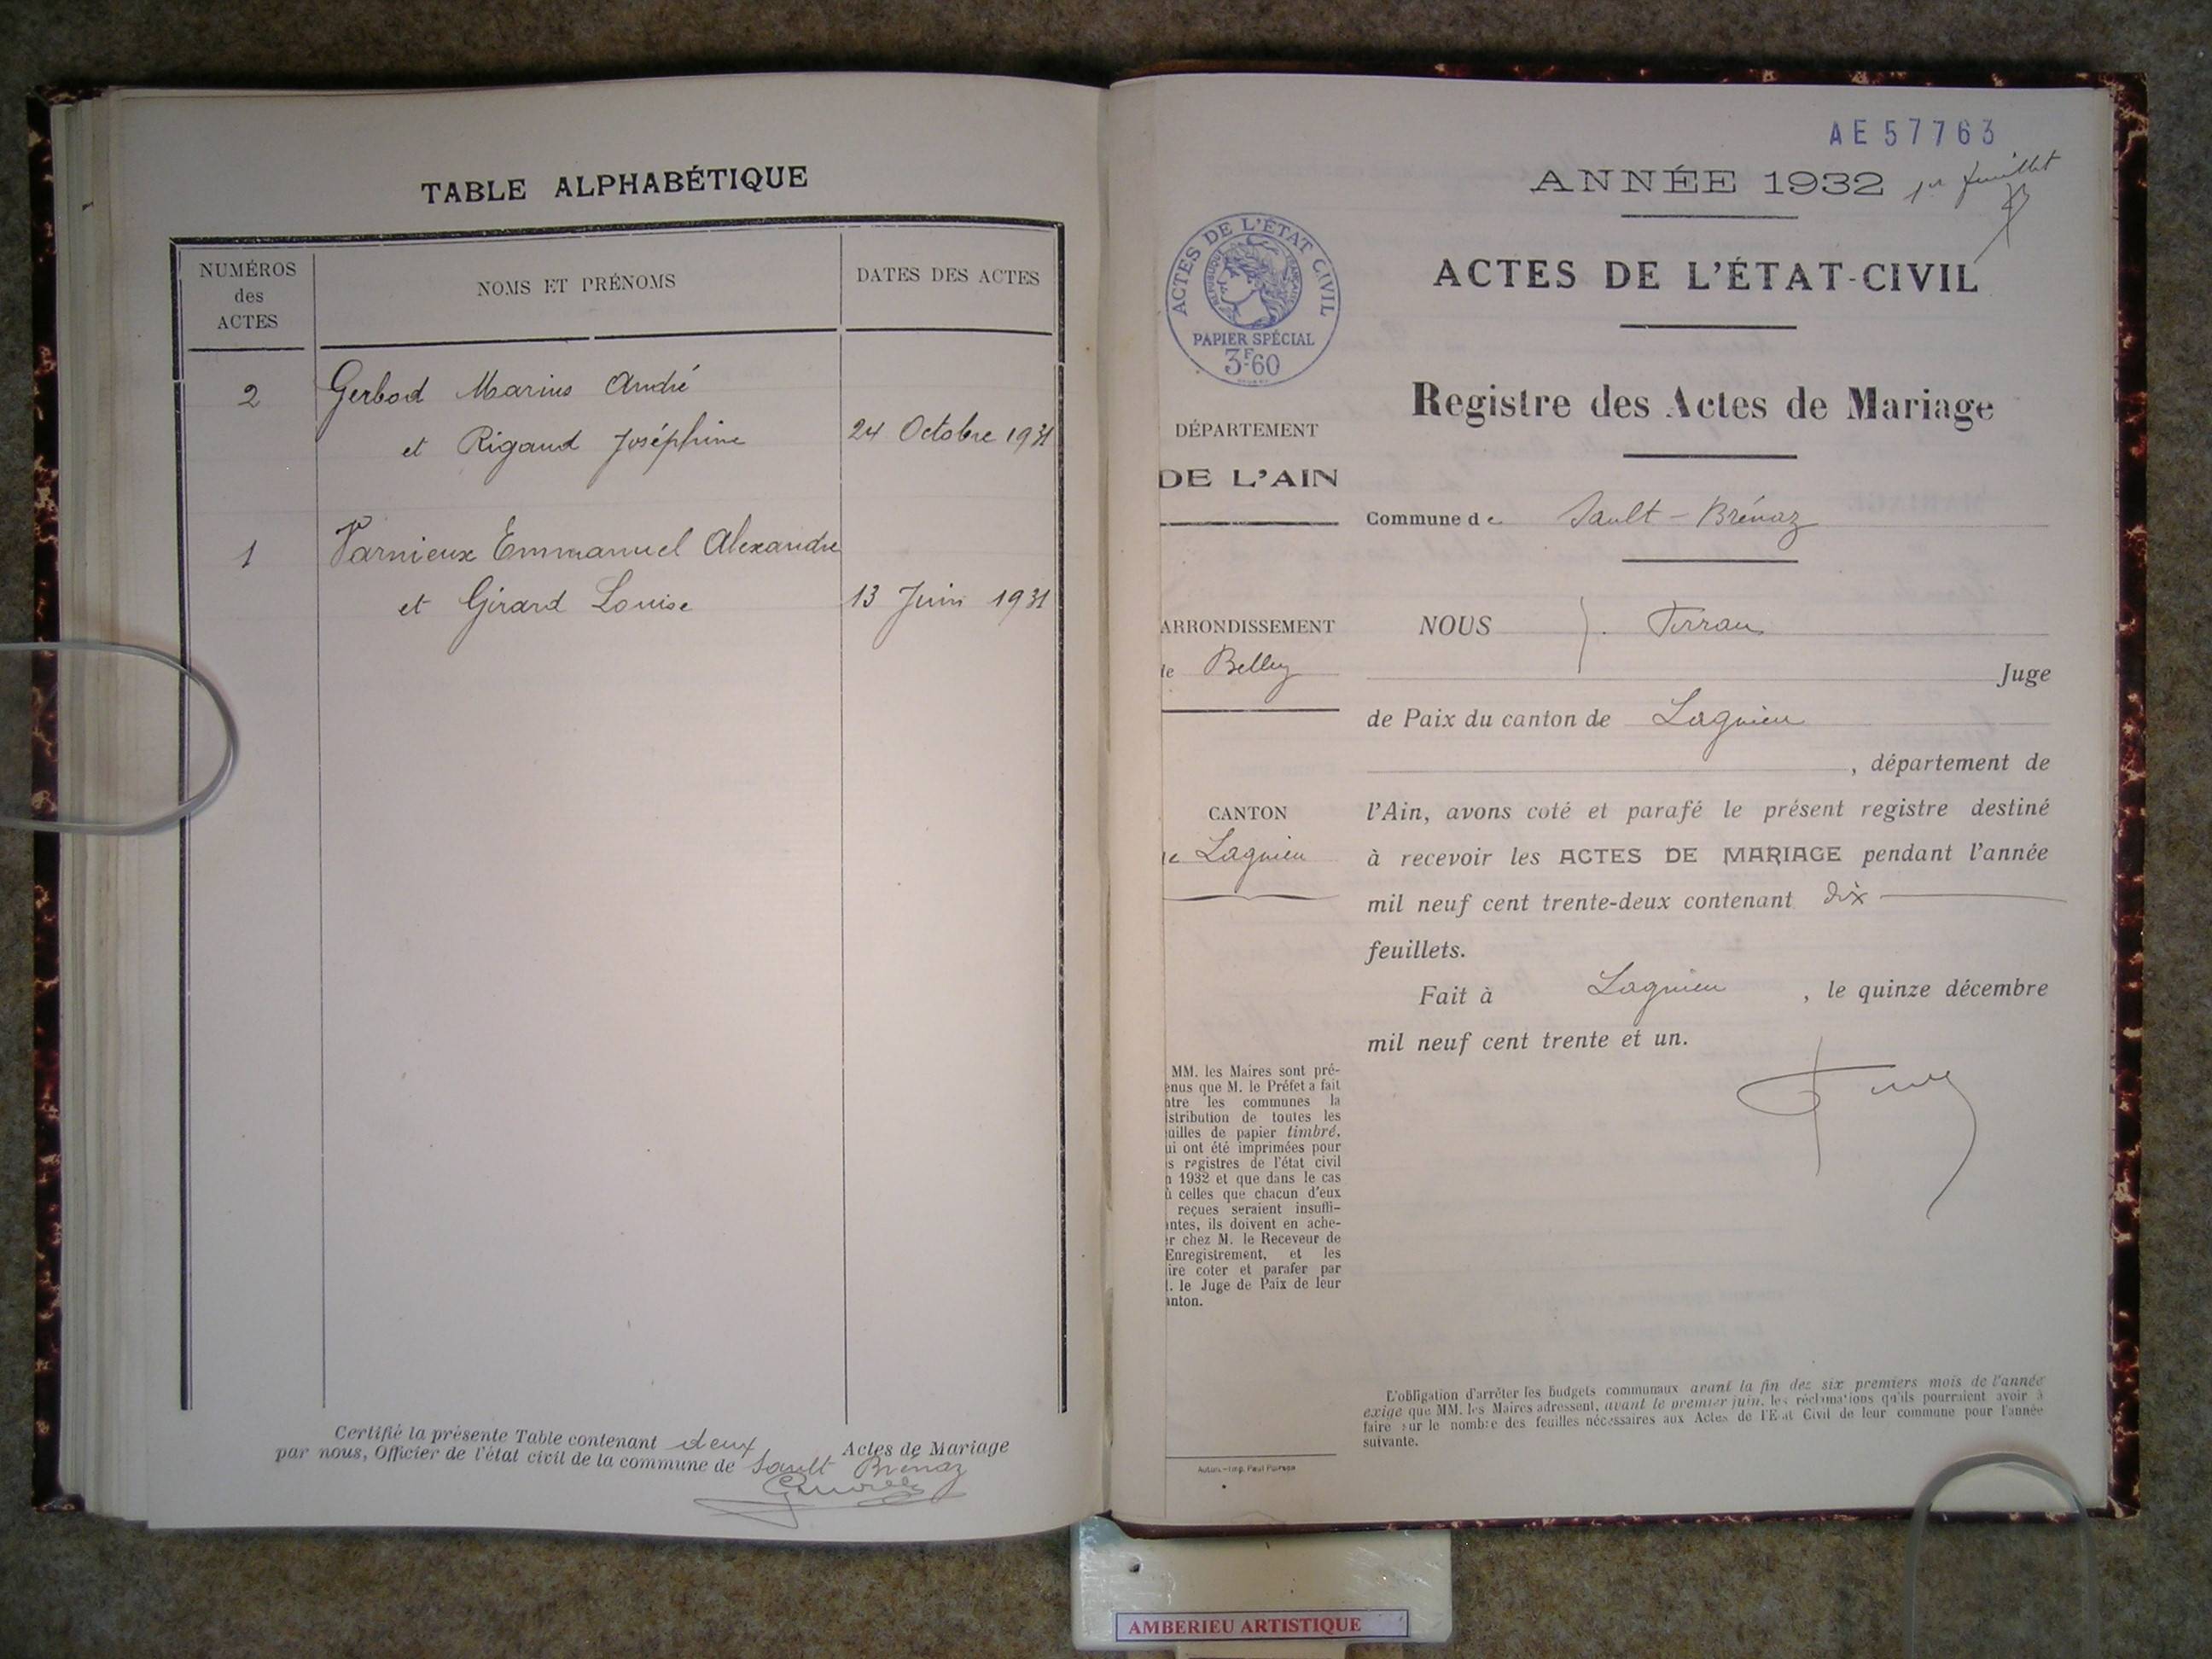 TABLE ALPHABÉTIQUE
NUMÉROS
des
ACTES
NOMS ET PRÉNOMS
DATES DES ACTES
2
Gerbod Marius André
et Rigaud Joséphine
24 Octobre 1931
1
Varnieux Emmanuel Alexandre
et Girard Louise
13 Juin 1931
Certifié la présente Table contenant deux Actes de Mariage
par nous, Officier de l'état civil de la commune de Sault Brénaz
AE 57763
ANNÉE 1932
1er feuillet
ACTES DE L'ÉTAT-CIVIL
ACTES DE L'ÉTAT CIVIL
RÉPUBLIQUE FRANÇAISE
PAPIER SPÉCIAL
3F60
Registre des Actes de Mariage
DÉPARTEMENT
DE L'AIN
Commune de Sault-Brénaz
ARRONDISSEMENT
de Belley
CANTON
de Lagnieu
NOUS J.
Juge
de Paix du canton de Lagnieu
, département de
l'Ain, avons coté et parafé le présent registre destiné
à recevoir les ACTES DE MARIAGE pendant l'année
mil neuf cent trente-deux contenant dix
feuillets.
Fait à Lagnieu, le quinze décembre
mil neuf cent trente et un.
MM. les Maires sont pré-
enus que M. le Préfet a fait
ntre les communes la
istribution de toutes les
uilles de papier timbré,
ui ont été imprimées pour
s registres de l'état civil
n 1932 et que dans le cas
ù celles que chacun d'eux
reçues seraient insuffi-
antes, ils doivent en ache-
er chez M. le Receveur de
Enregistrement, et les
ire coter et parafer par
. le Juge de Paix de leur
anton.
L'obligation d'arrêter les budgets communaux avant la fin des six premiers mois de l'année
exige que MM. les Maires adressent, avant le premier juin, les réclamations qu'ils pourraient avoir à
faire sur le nombre des feuilles nécessaires aux Actes de l'Etat Civil de leur commune pour l'année
suivante.
AMBERIEU ARTISTIQUE